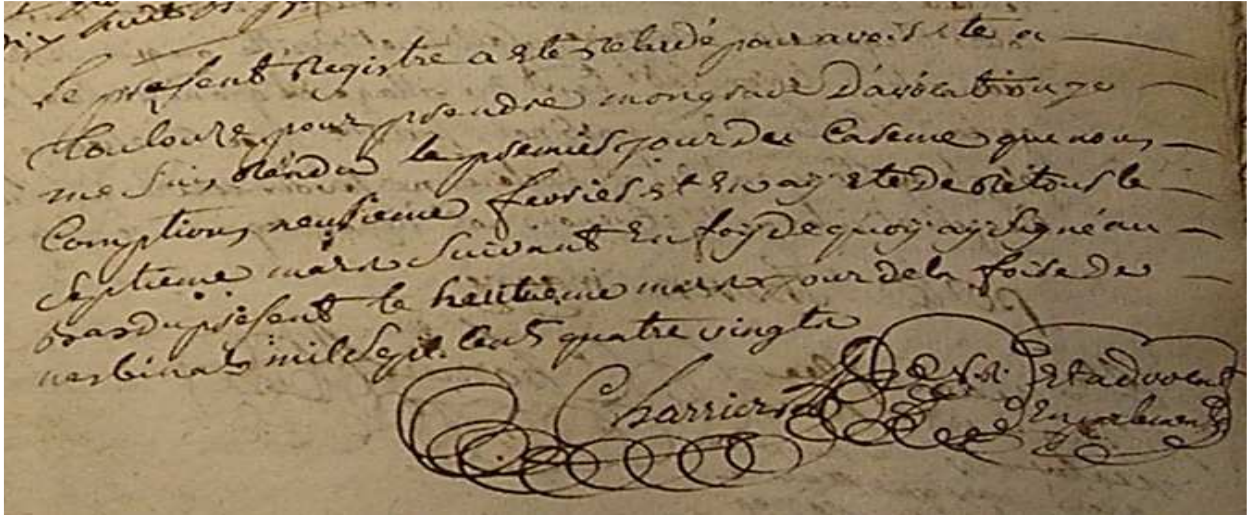 dix huit
le present Registre a eté retardé pour avoir ete a
toulouse pour prendre mon grade D'avocat ou je
me suis Rendu le premier jour de Careme que nous
Comptions neufieme fevrier et En ay ete de Retour le
septieme mars suivant En foy de quoy ay signé au
bas du present le heutieme mars jour de la foire de
nasbinals mil sept Cent quatre vingts
Charrier